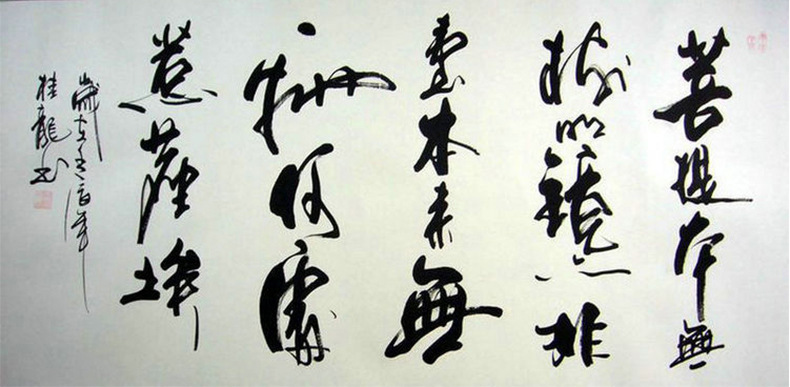 菩提本無
樹明鏡亦非
臺本來無
物何處
惹塵埃
歲在年
桂龍书